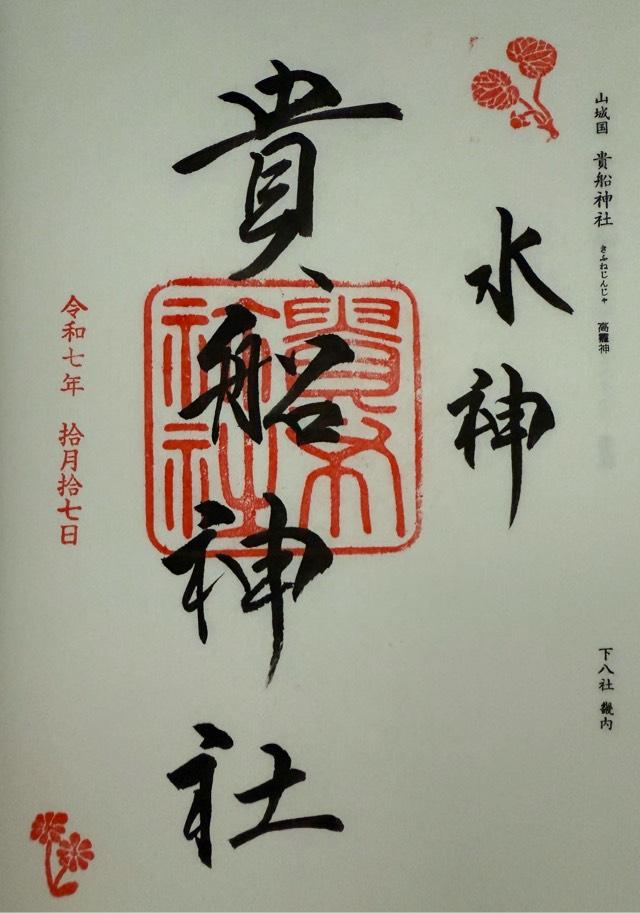 山城国 貴船神社 きふねじんじゃ 高龗神
下八社 畿内
水神
貴船神社
令和七年 拾月拾七日